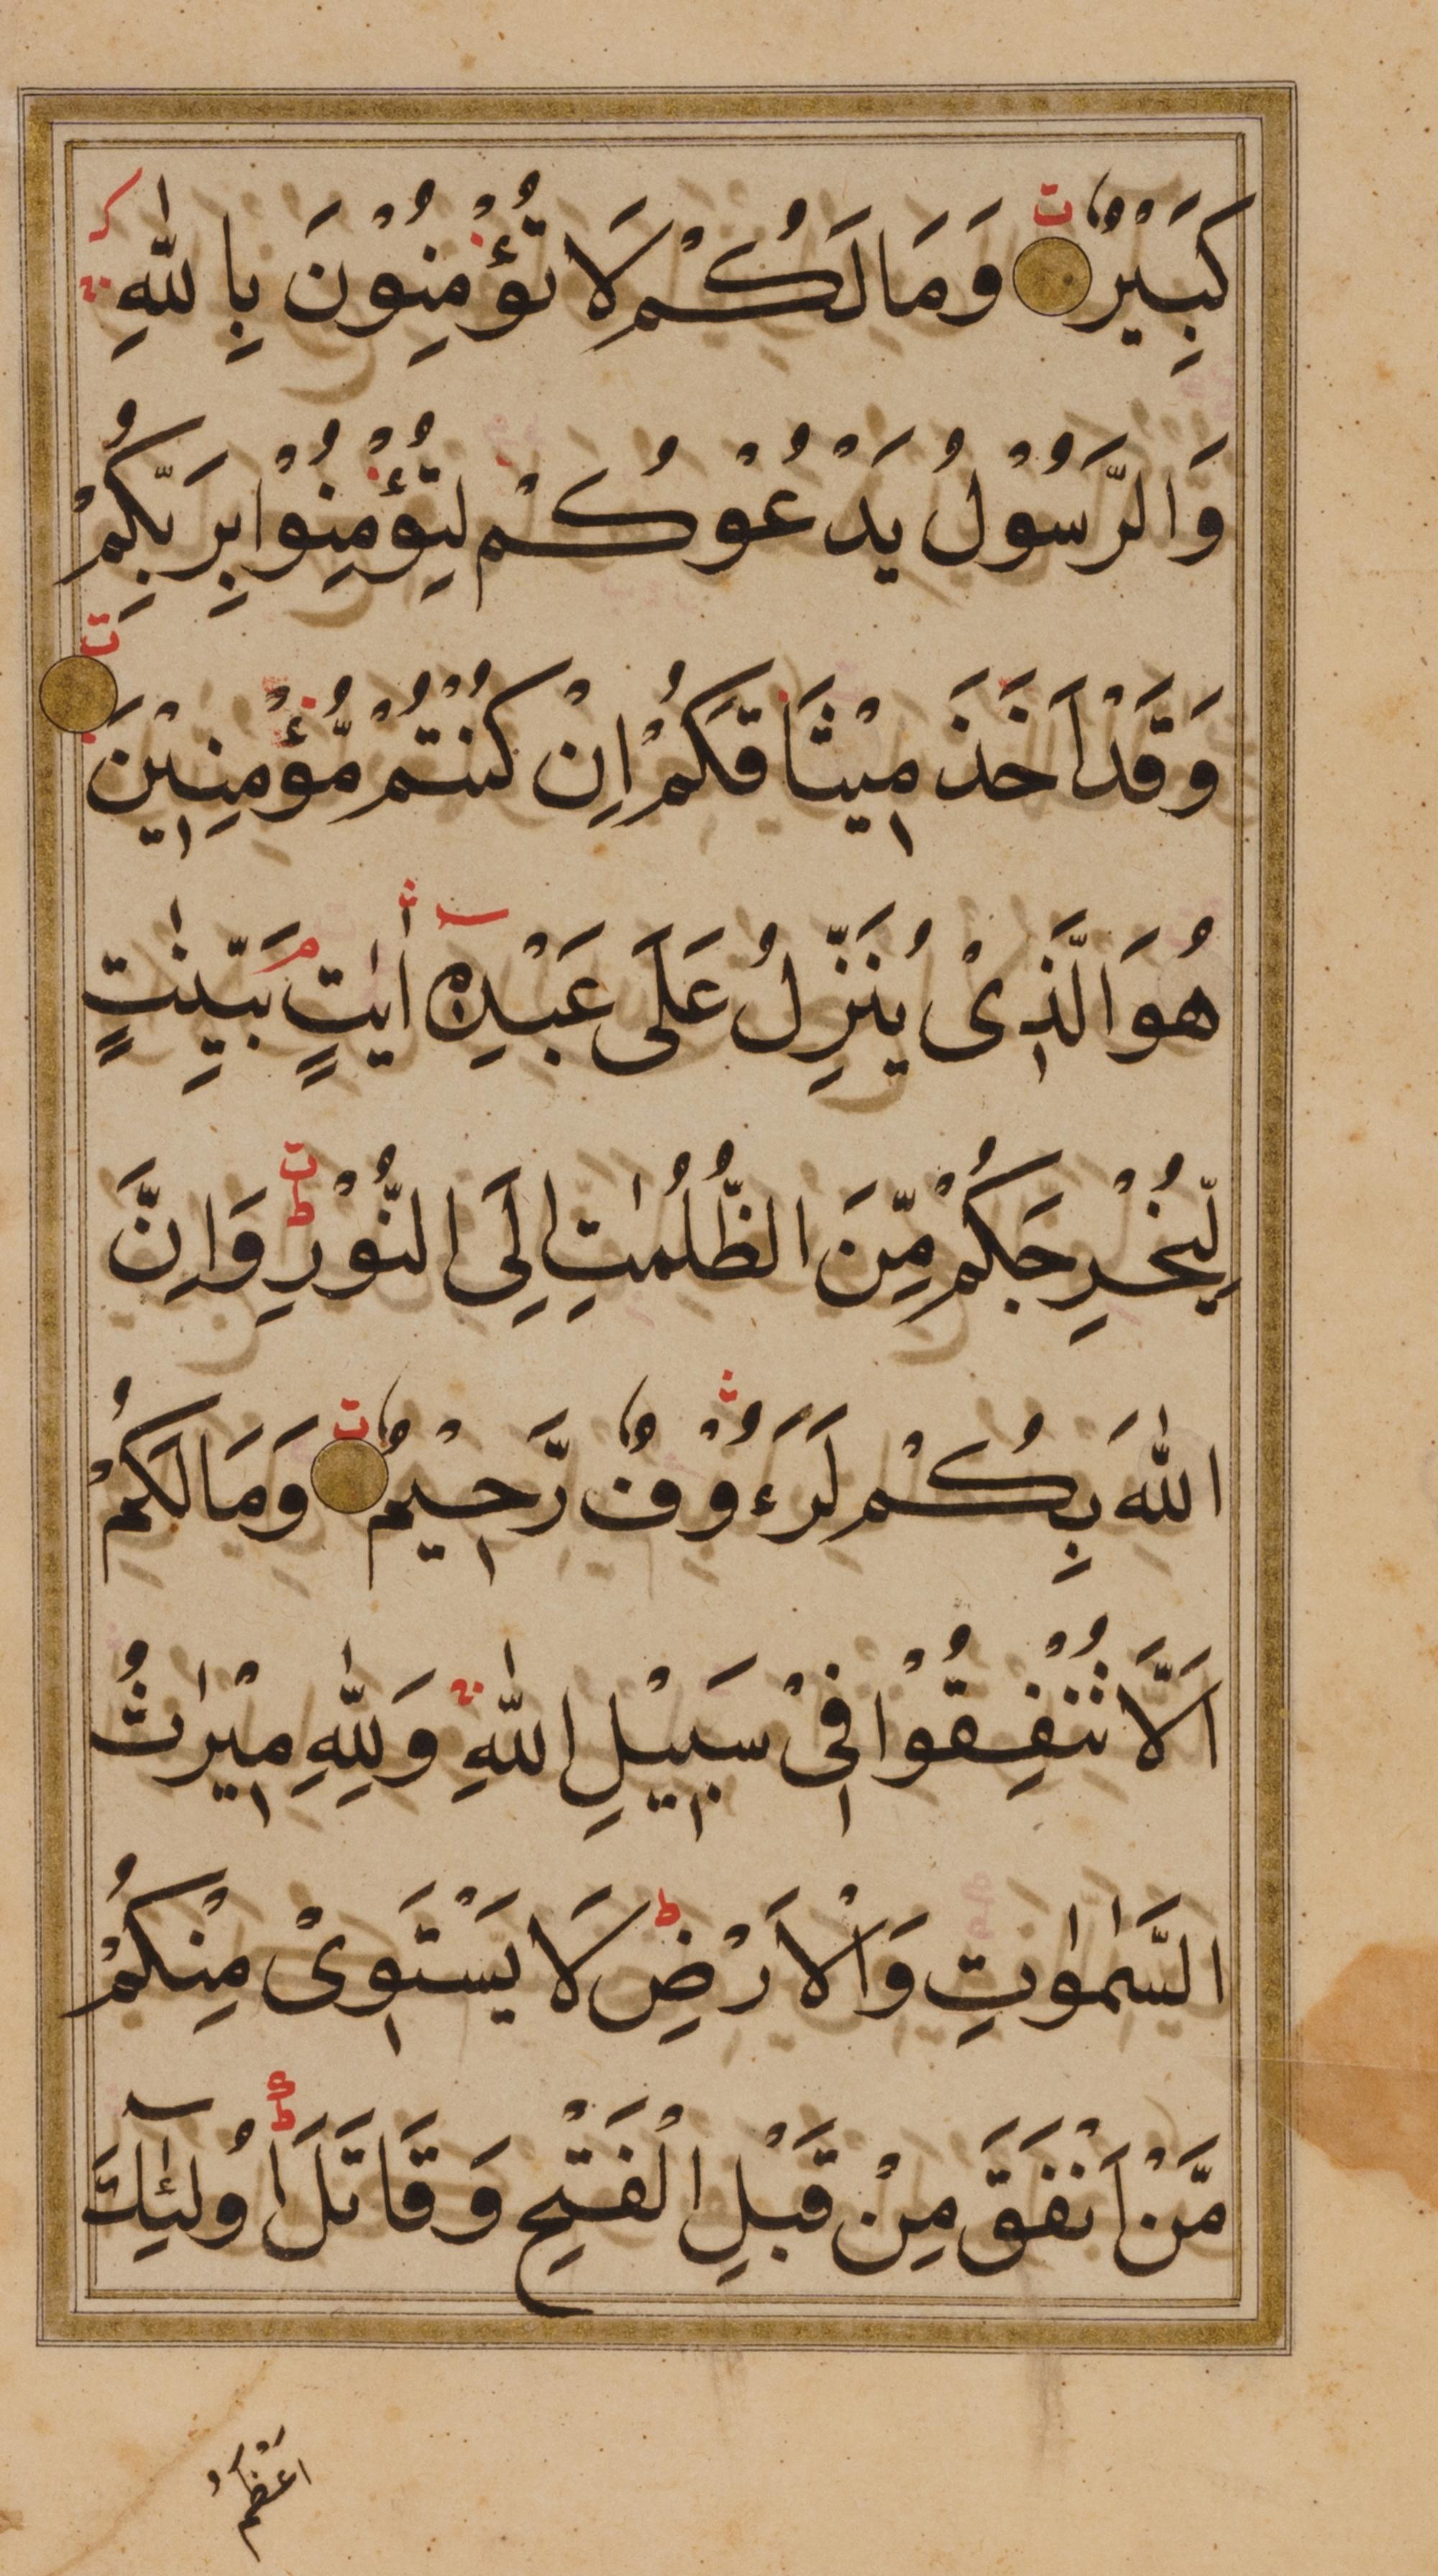 كَبِيْرٌ وَمَا لَكُمْ لَا تُؤْمِنُوْنَ بِاللّٰهِ
وَالرَّسُوْلُ يَدْعُوْكُمْ لِتُؤْمِنُوْا بِرَبِّكُمْ
وَقَدْ اَخَذَ مِيْثَاقَكُمْ اِنْ كُنْتُمْ مُّؤْمِنِيْنَ
هُوَ الَّذِىْ يُنَزِّلُ عَلَى عَبْدِهٖ اٰيٰتٍ بَيِّنٰتٍ
لِّيُخْرِجَكُمْ مِّنَ الظُّلُمٰتِ اِلَى النُّوْرِ ط وَاِنَّ
اللّٰهَ بِكُمْ لَرَءُوْفٌ رَّحِيْمٌ وَمَا لَكُمْ
اَلَّا تُنْفِقُوْا فِىْ سَبِيْلِ اللّٰهِ وَلِلّٰهِ مِيْرٰثُ
السَّمٰوٰتِ وَالْاَرْضِ ط لَا يَسْتَوِىْ مِنْكُمْ
مَّنْ اَنْفَقَ مِنْ قَبْلِ الْفَتْحِ وَقَاتَلَ ط اُولٰٓئِكَ
اَعْظَمُ